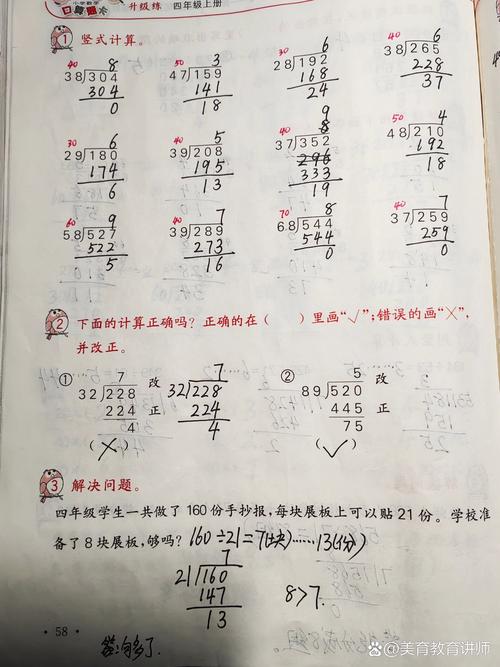 小学数学
口算题卡 升级练 四年级上册
1 竖式计算。
40 8
38)304
304
0
50 3
47)159
141
18
30 6
28)192
168
24
40 6
38)265
228
37
30 6
29)180
174
6
40 5
39)208
195
13
9
40 8
37)352
296
333
19
50 4
48)210
192
18
60 9
58)527
522
5
40 7
39)289
273
16
70 8
68)544
544
0
40 7
37)259
259
0
2 下面的计算正确吗？正确的在（ ）里画“√”；错误的画“×”，
并改正。
① 7
32)228
224
4
(×)
改正
7
32)228
224
4
② 5
89)520
445
75
(√)
改正
3 解决问题。
四年级学生一共做了160份手抄报，每块展板上可以贴21份。学校准
备了8块展板，够吗？160÷21=7(块)……13(份)
7
21)160
147
13
8>7.
·58·
答:够了.
头条 @美育教育讲师